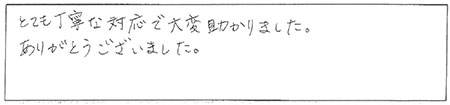 とても丁寧な対応で大変助かりました。
ありがとうございました。